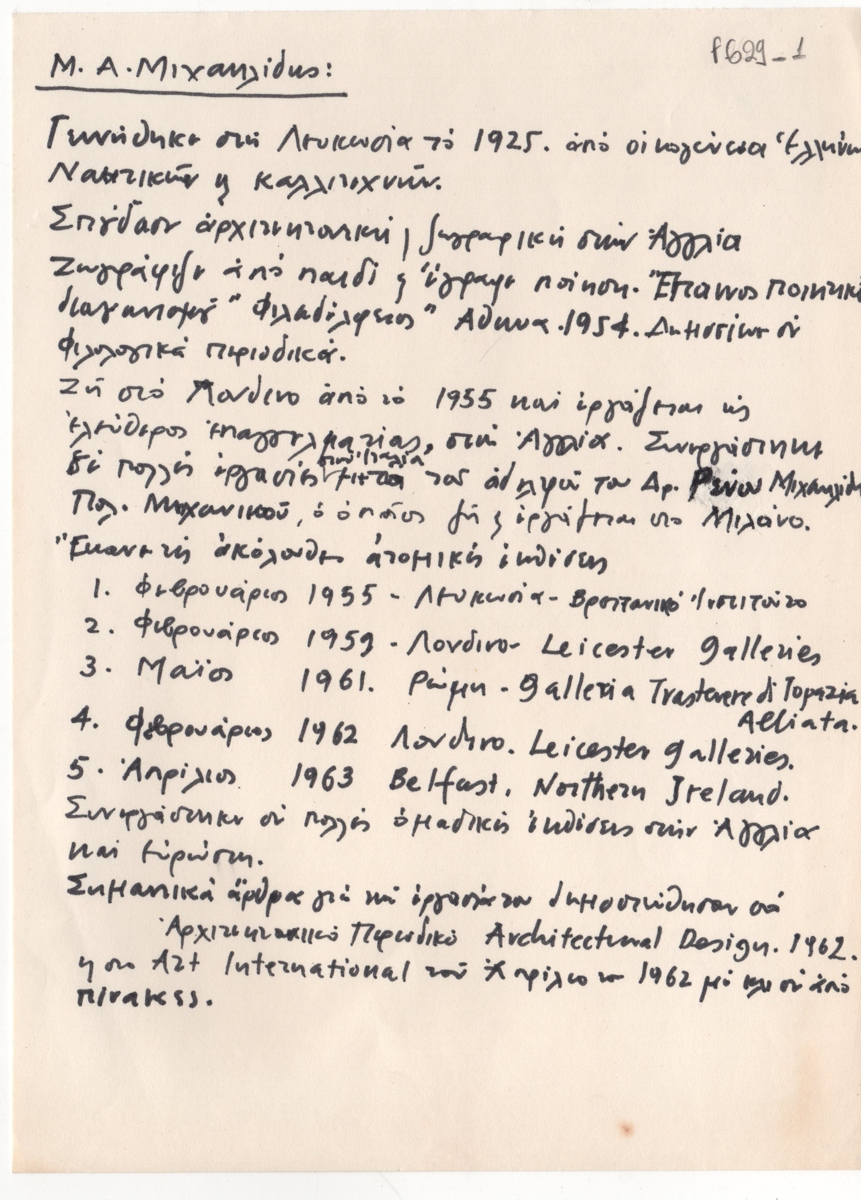 F629-1
Μ. Α. Μιχαηλίδης:
Γεννήθηκε στη Λευκωσία τό 1925. ἀπό οἰκογένεια Ἑλλήνων
Ναυτικῶν ϗ καλλιτεχνῶν.
Σπούδασε ἀρχιτεκτονική ϗ ζωγραφική στήν Ἀγγλία
Ζωγράφιζε ἀπό παιδί ϗ ἔγραφε ποίηση. Ἔπαινος ποιητικοῦ
διαγωνισμοῦ "Φιλαδέλφειος" Αθηνα. 1954. Δημοσίευσε σέ
φιλολογικά περιοδικά.
Ζῆ στό Λονδίνο ἀπό τό 1955 καί ἐργάζεται ὡς
ἐλεύθερος ἐπαγγελματίας, στήν Ἀγγλία. Συνεργάστηκε
σέ πολλές ἐργασίες στήν Ἰταλία μετά τοῦ ἀδελφοῦ του Δρ. Ρένου Μιχαηλίδη
Πολ. Μηχανικοῦ, ὁ ὁποῖος ζῆ ϗ ἐργάζεται στο Μιλάνο.
Ἔκανε τίς ἀκόλουθες ἀτομικές ἐκθέσεις
1. Φεβρουάριος 1955 - Λευκωσία - Βρεττανικό Ἰνστιτοῦτο
2. Φεβρουάριος 1959 - Λονδίνο - Leicester Galleries
3. Μαϊος 1961. Ρώμη - Galleria Trastevere di Topazia
Alliata.
4. Φεβρουάριος 1962 Λονδίνο. Leicester Galleries.
5. Ἀπρίλιος 1963 Belfast, Northern Ireland.
Συνεργάστηκε σέ πολλές ὁμαδικές ἐκθέσεις στήν Ἀγγλία
καί Εὐρώπη.
Σημαντικά ἄρθρα γιά τή ἐργασία του δημοσιεύθησαν σό
Ἀρχιτεκτονικό Περιοδικό Architectural Design. 1962.
ϗ στο Art International τοῦ Ἀπριλίου 1962 μέ ἀπό
πίνακες.